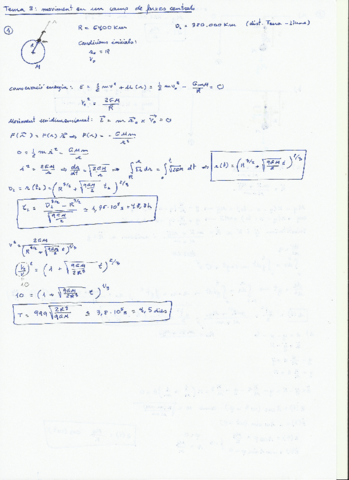 Tema 2: moviment en un camp de forces centrals
① R = 6400 Km D₀ = 380.000 Km (dist. Terra-Lluna)
Condicions inicials:
r₀ = R
v₀
M
conservació energia: E = ½ m v² + U(r) = ½ m v₀² - GMm/R = 0
v₀² = 2GM/R
Moviment unidimensional: L = m r₀ × v₀ = 0
F(r) = F(r) r → F(r) = - GMm/r²
0 = ½ m ṙ² - GMm/r
ṙ² = 2GM/r → dr/dt = √(2GM/r) → ∫ √r dr = ∫ √2GM dt → r(t) = (R^{3/2} + √(9GM/2) t)^{2/3}
= (R^{3/2} + √(9GM/2) t)^{2/3}
v² = 2GM/(R^{3/2} + √(9GM/2) t)^{2/3}
= (1 + √(9GM/2R³) t)^{2/3}
10 = (1 + √(9GM/2R³) t)^{1/3}
T = 999 √(2R³/9GM)